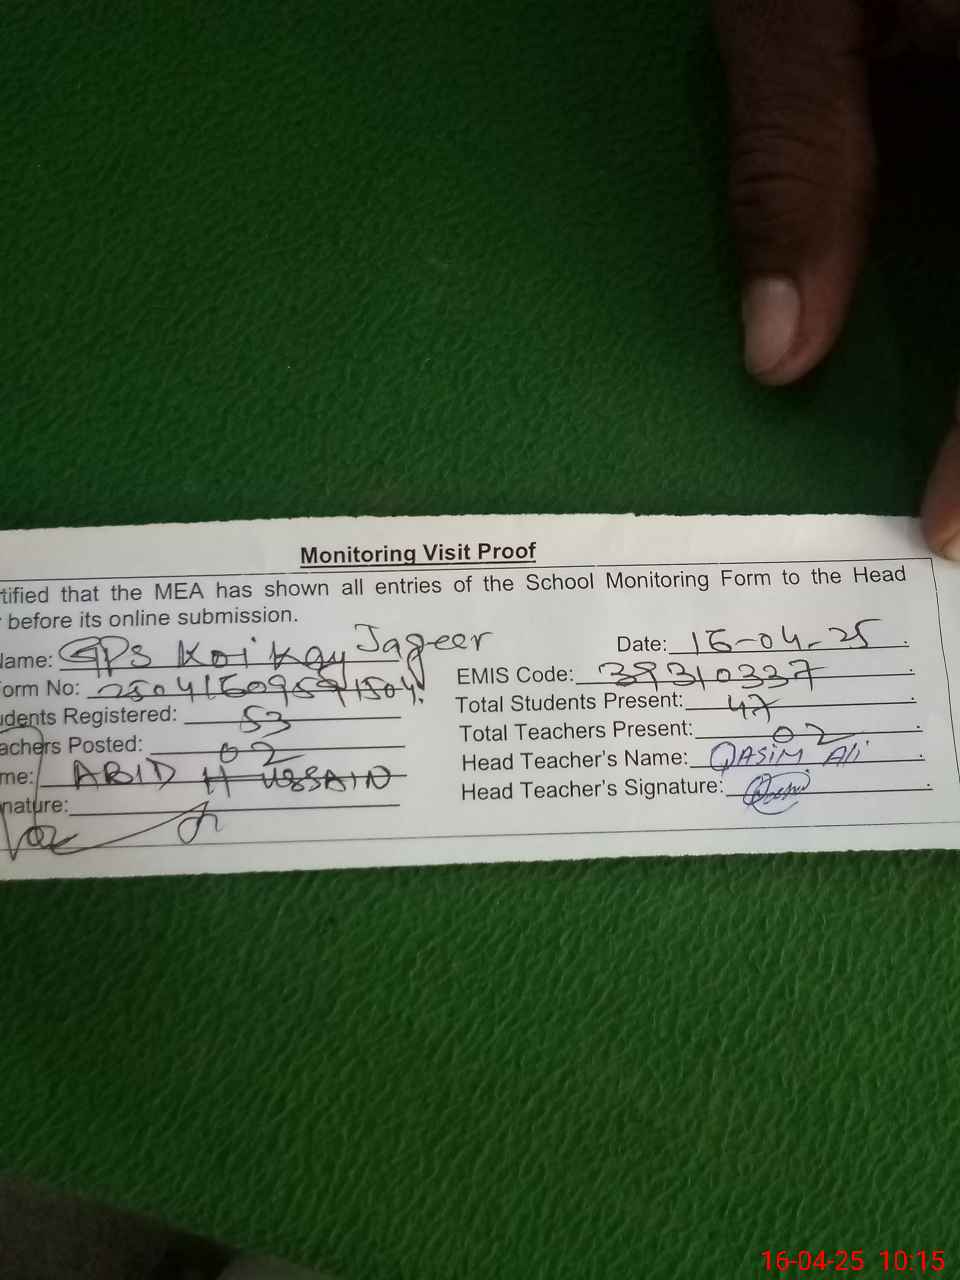 Monitoring Visit Proof
tified that the MEA has shown all entries of the School Monitoring Form to the Head
before its online submission.
Name: GPS Koi Kay Jageer Date: 16-04-25
orm No: EMIS Code: 38310337
dents Registered: 53 Total Students Present: 47
achers Posted: 02 Total Teachers Present: 02
me: ABID HUSSAIN Head Teacher's Name: QASIM Ali
nature: Head Teacher's Signature:
16-04-25 10:15